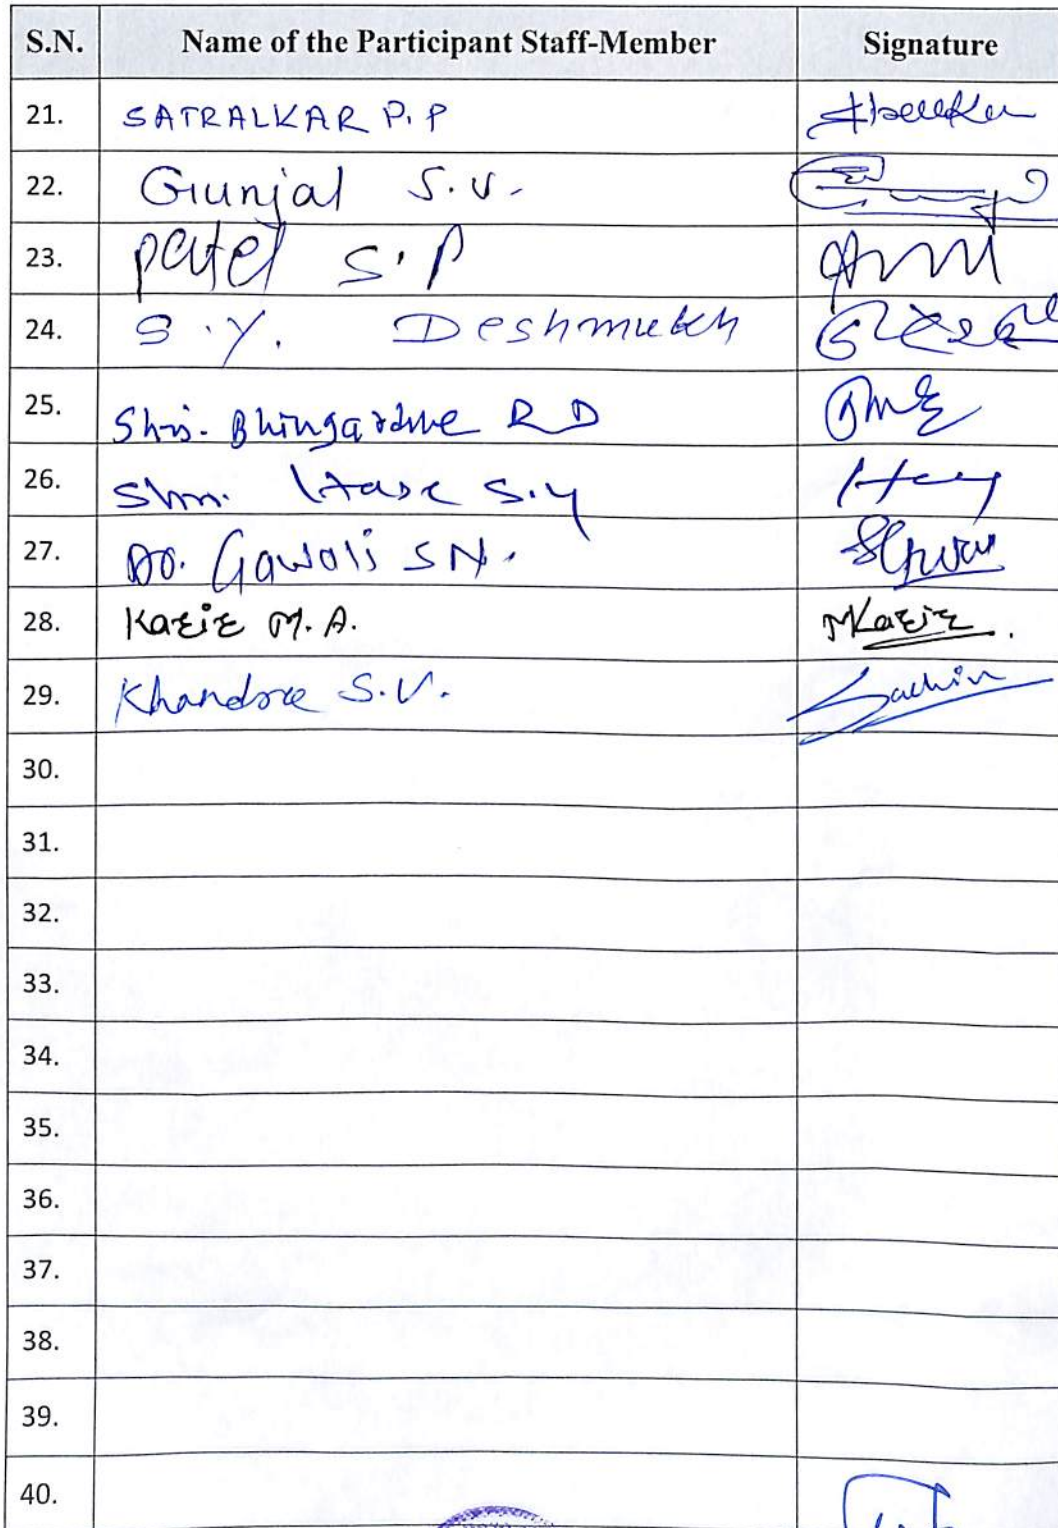 S.N. Name of the Participant Staff-Member Signature
21. SATRALKAR P. P
22. Gunjal S.V.
23. Patel S.P
24. S.Y. Deshmukh
25. Shri. Bhingardive R D
26. Shri. Hase S.Y
27. Dr. Gawali S N.
28. Kazi M. A. MKazi
29. Khandre S.V. Sachin
30.
31.
32.
33.
34.
35.
36.
37.
38.
39.
40.